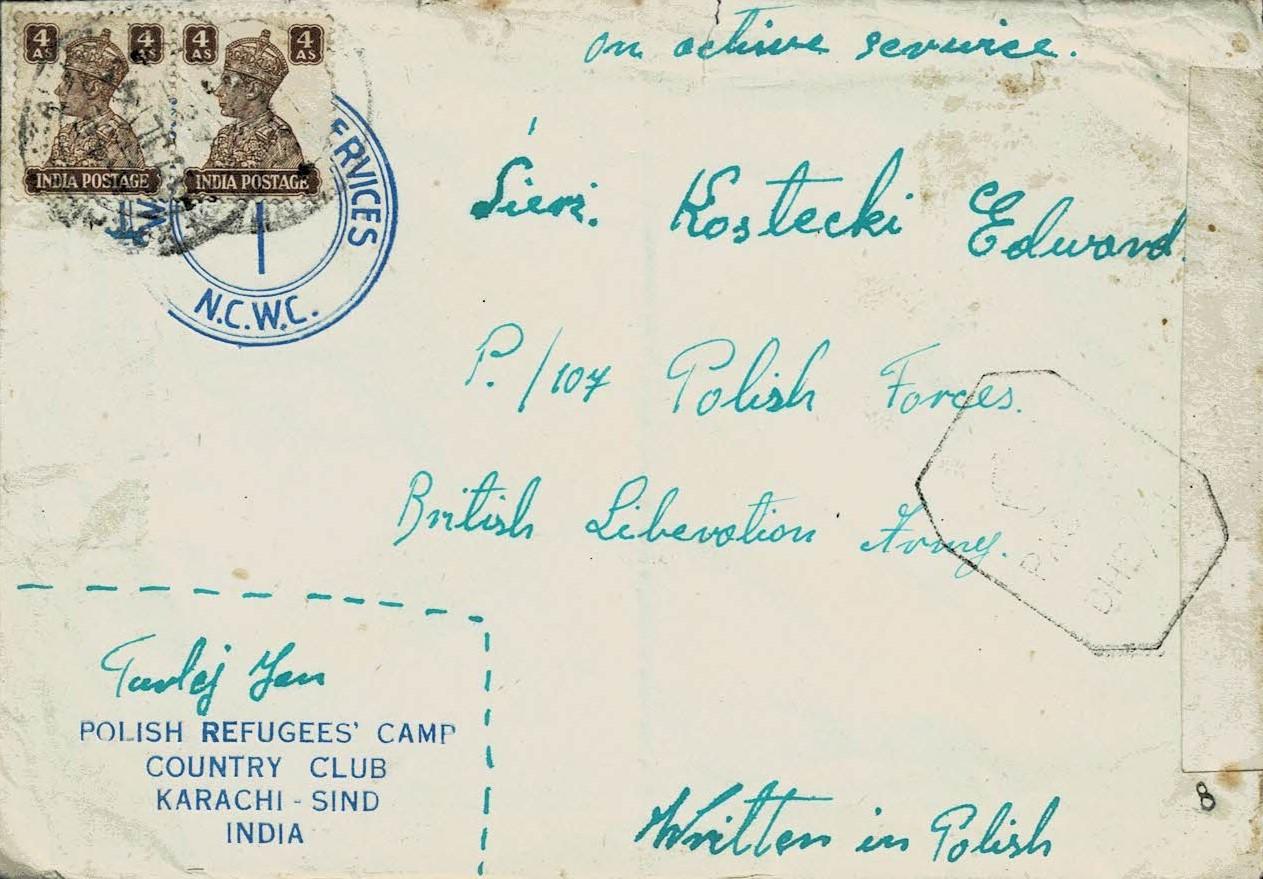 4 AS 4 AS 4 AS 4 AS
INDIA POSTAGE INDIA POSTAGE
on active service.
N.C.W.C.
Kostecki Edward.
P./107 Polish Forces.
British Liberation Army.
Jan
POLISH REFUGEES' CAMP
COUNTRY CLUB
KARACHI - SIND
INDIA
Written in Polish
8